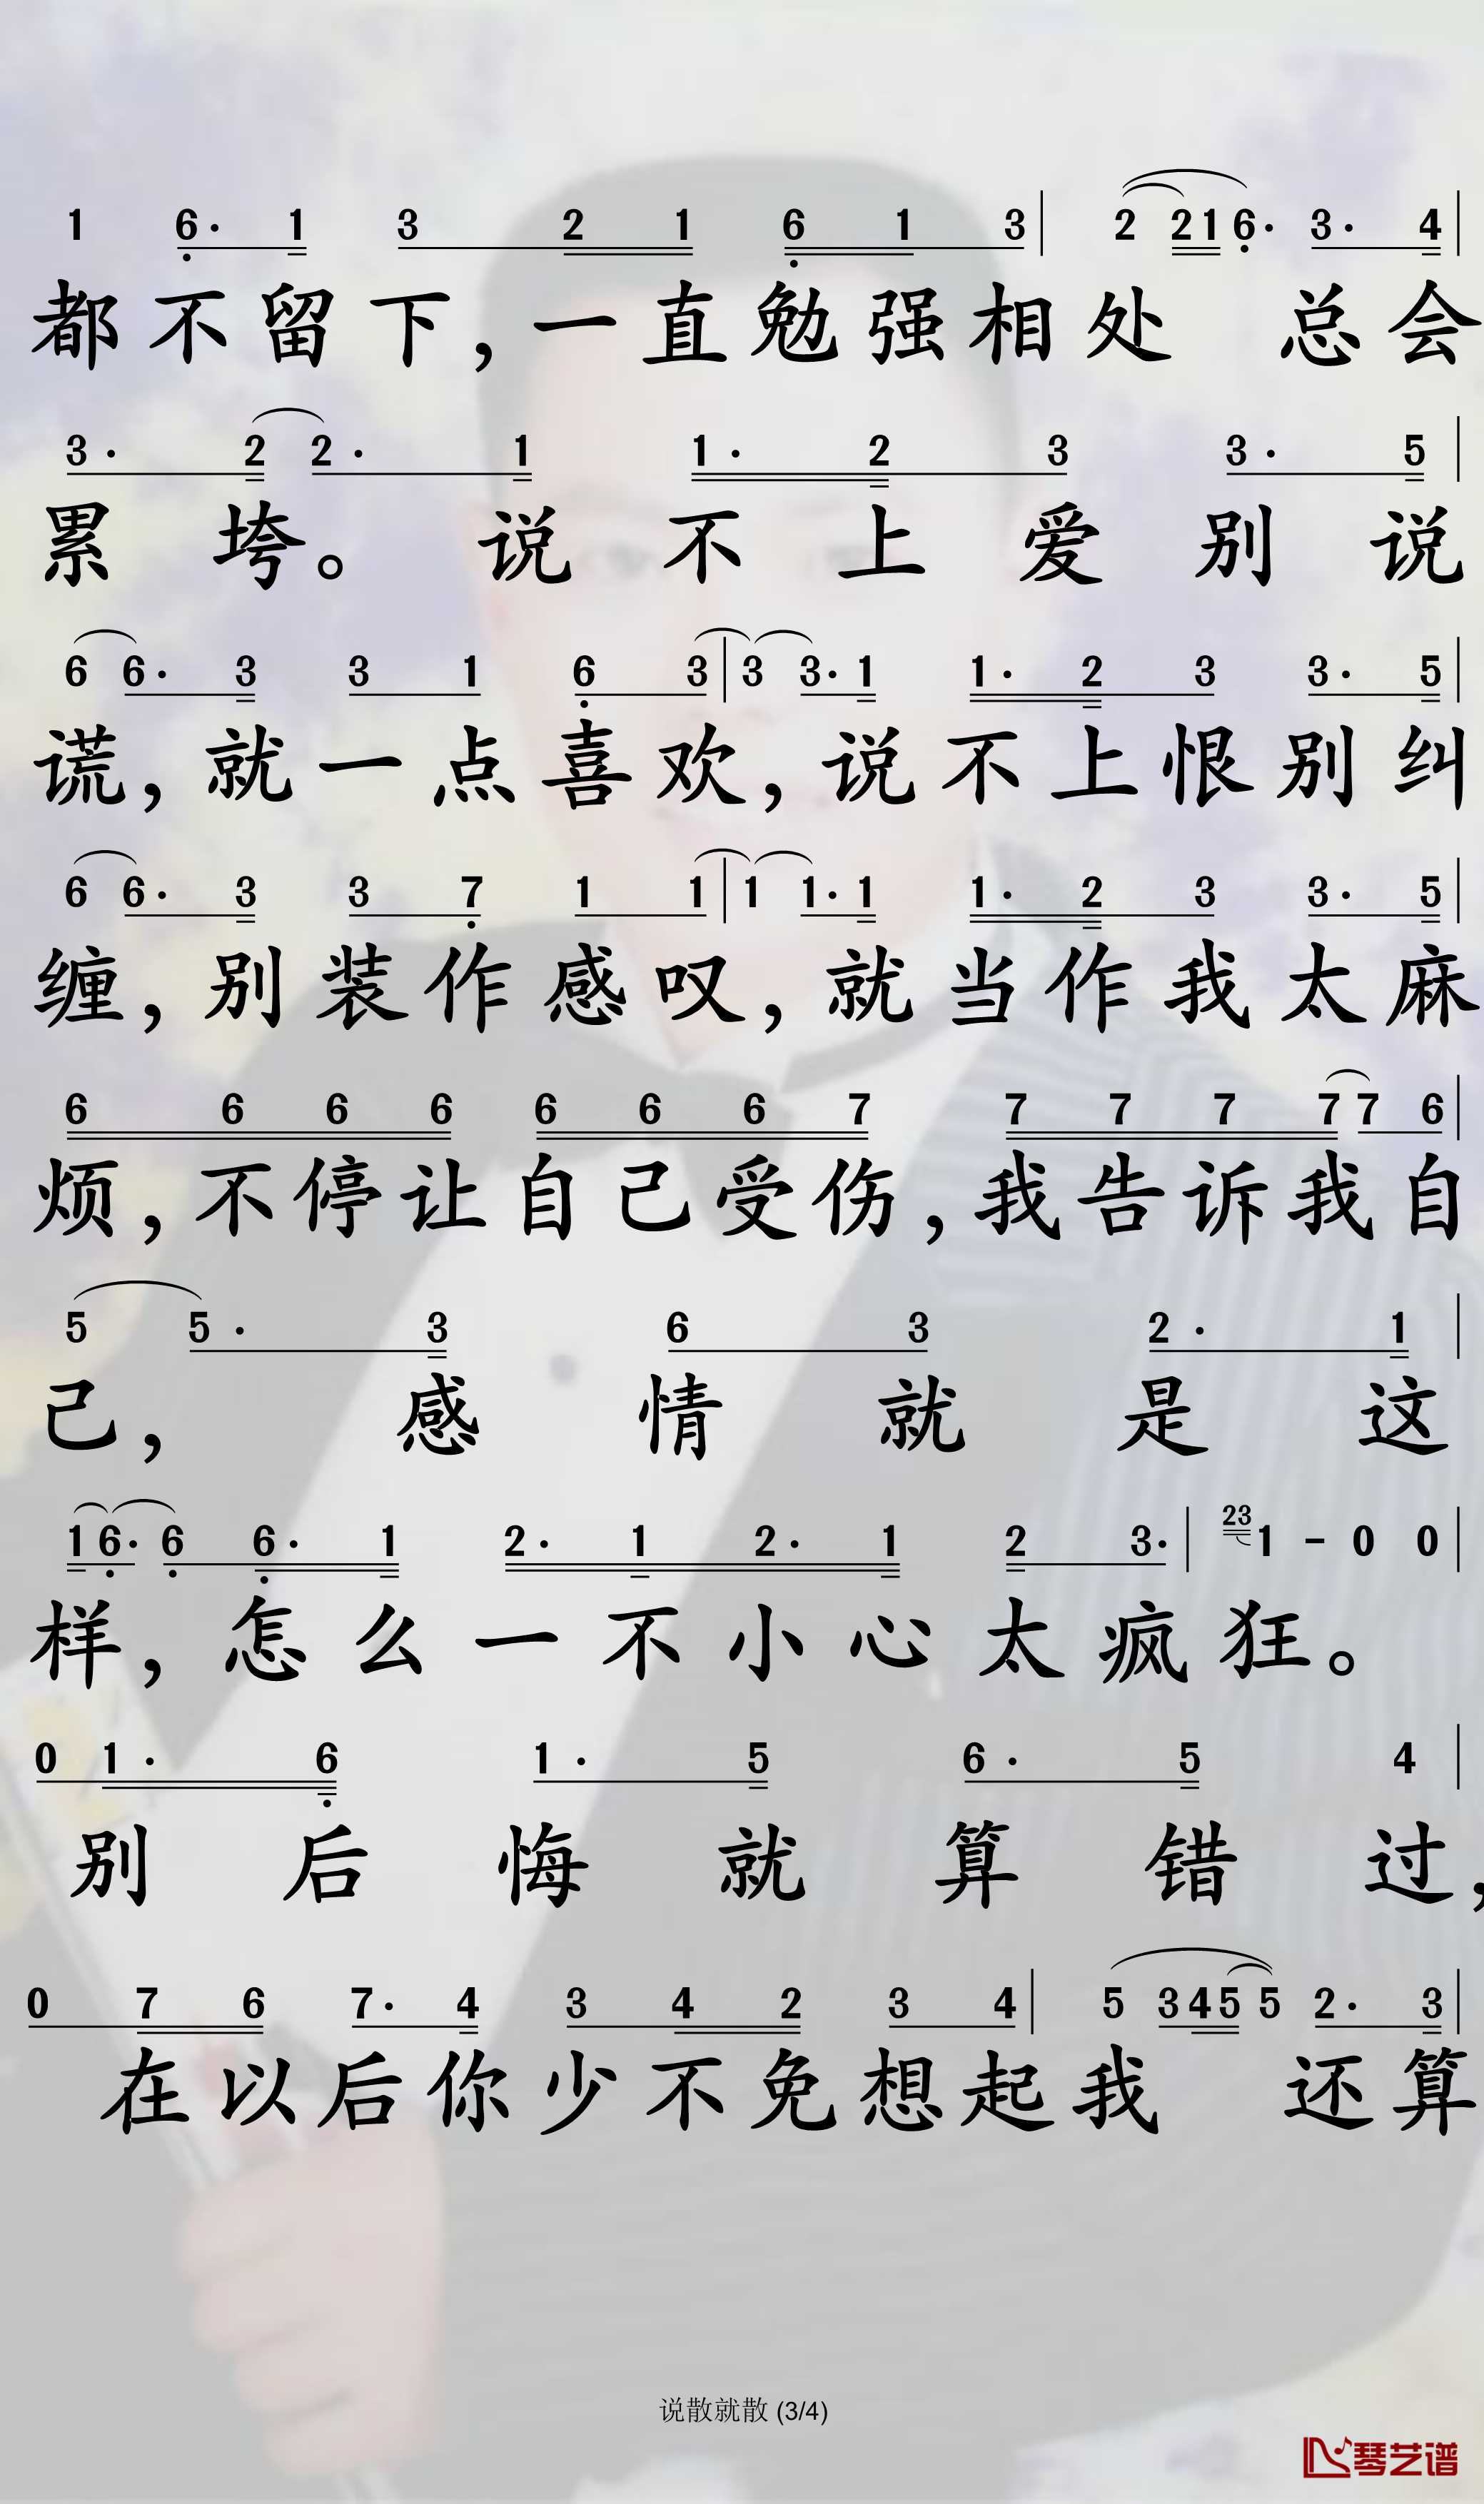 1 6· 1 3 2 1 6 1 3 | 2 2 1 6· 3· 4 |
都不留下,一直勉强相处 总会
3· 2 2· 1 1· 2 3 3· 5 |
累垮。说不上爱别说
6 6· 3 3 1 6 3 | 3 3· 1 1· 2 3 3· 5 |
谎,就一点喜欢,说不上恨别纠
6 6· 3 3 7 1 1 | 1 1· 1 1· 2 3 3· 5 |
缠,别装作感叹,就当作我太麻
6 6 6 6 6 6 6 7 7 7 7 7 7 6 |
烦,不停让自己受伤,我告诉我自
5 5· 3 6 3 2· 1 |
己,感情就是这
1 6· 6 6· 1 2· 1 2· 1 2 3· | 23 1 - 0 0 |
样,怎么一不小心太疯狂。
0 1· 6 1· 5 6· 5 4 |
别后悔就算错过,
0 7 6 7· 4 3 4 2 3 4 | 5 3 4 5 5 2· 3 |
在以后你少不免想起我 还算
说散就散 (3/4)
琴艺谱